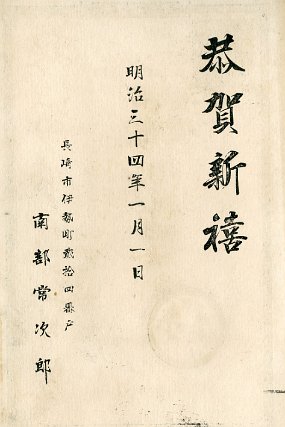 恭賀新禧
明治三十四年一月一日
長崎市伊勢町貳拾四番戸
南部常次郎